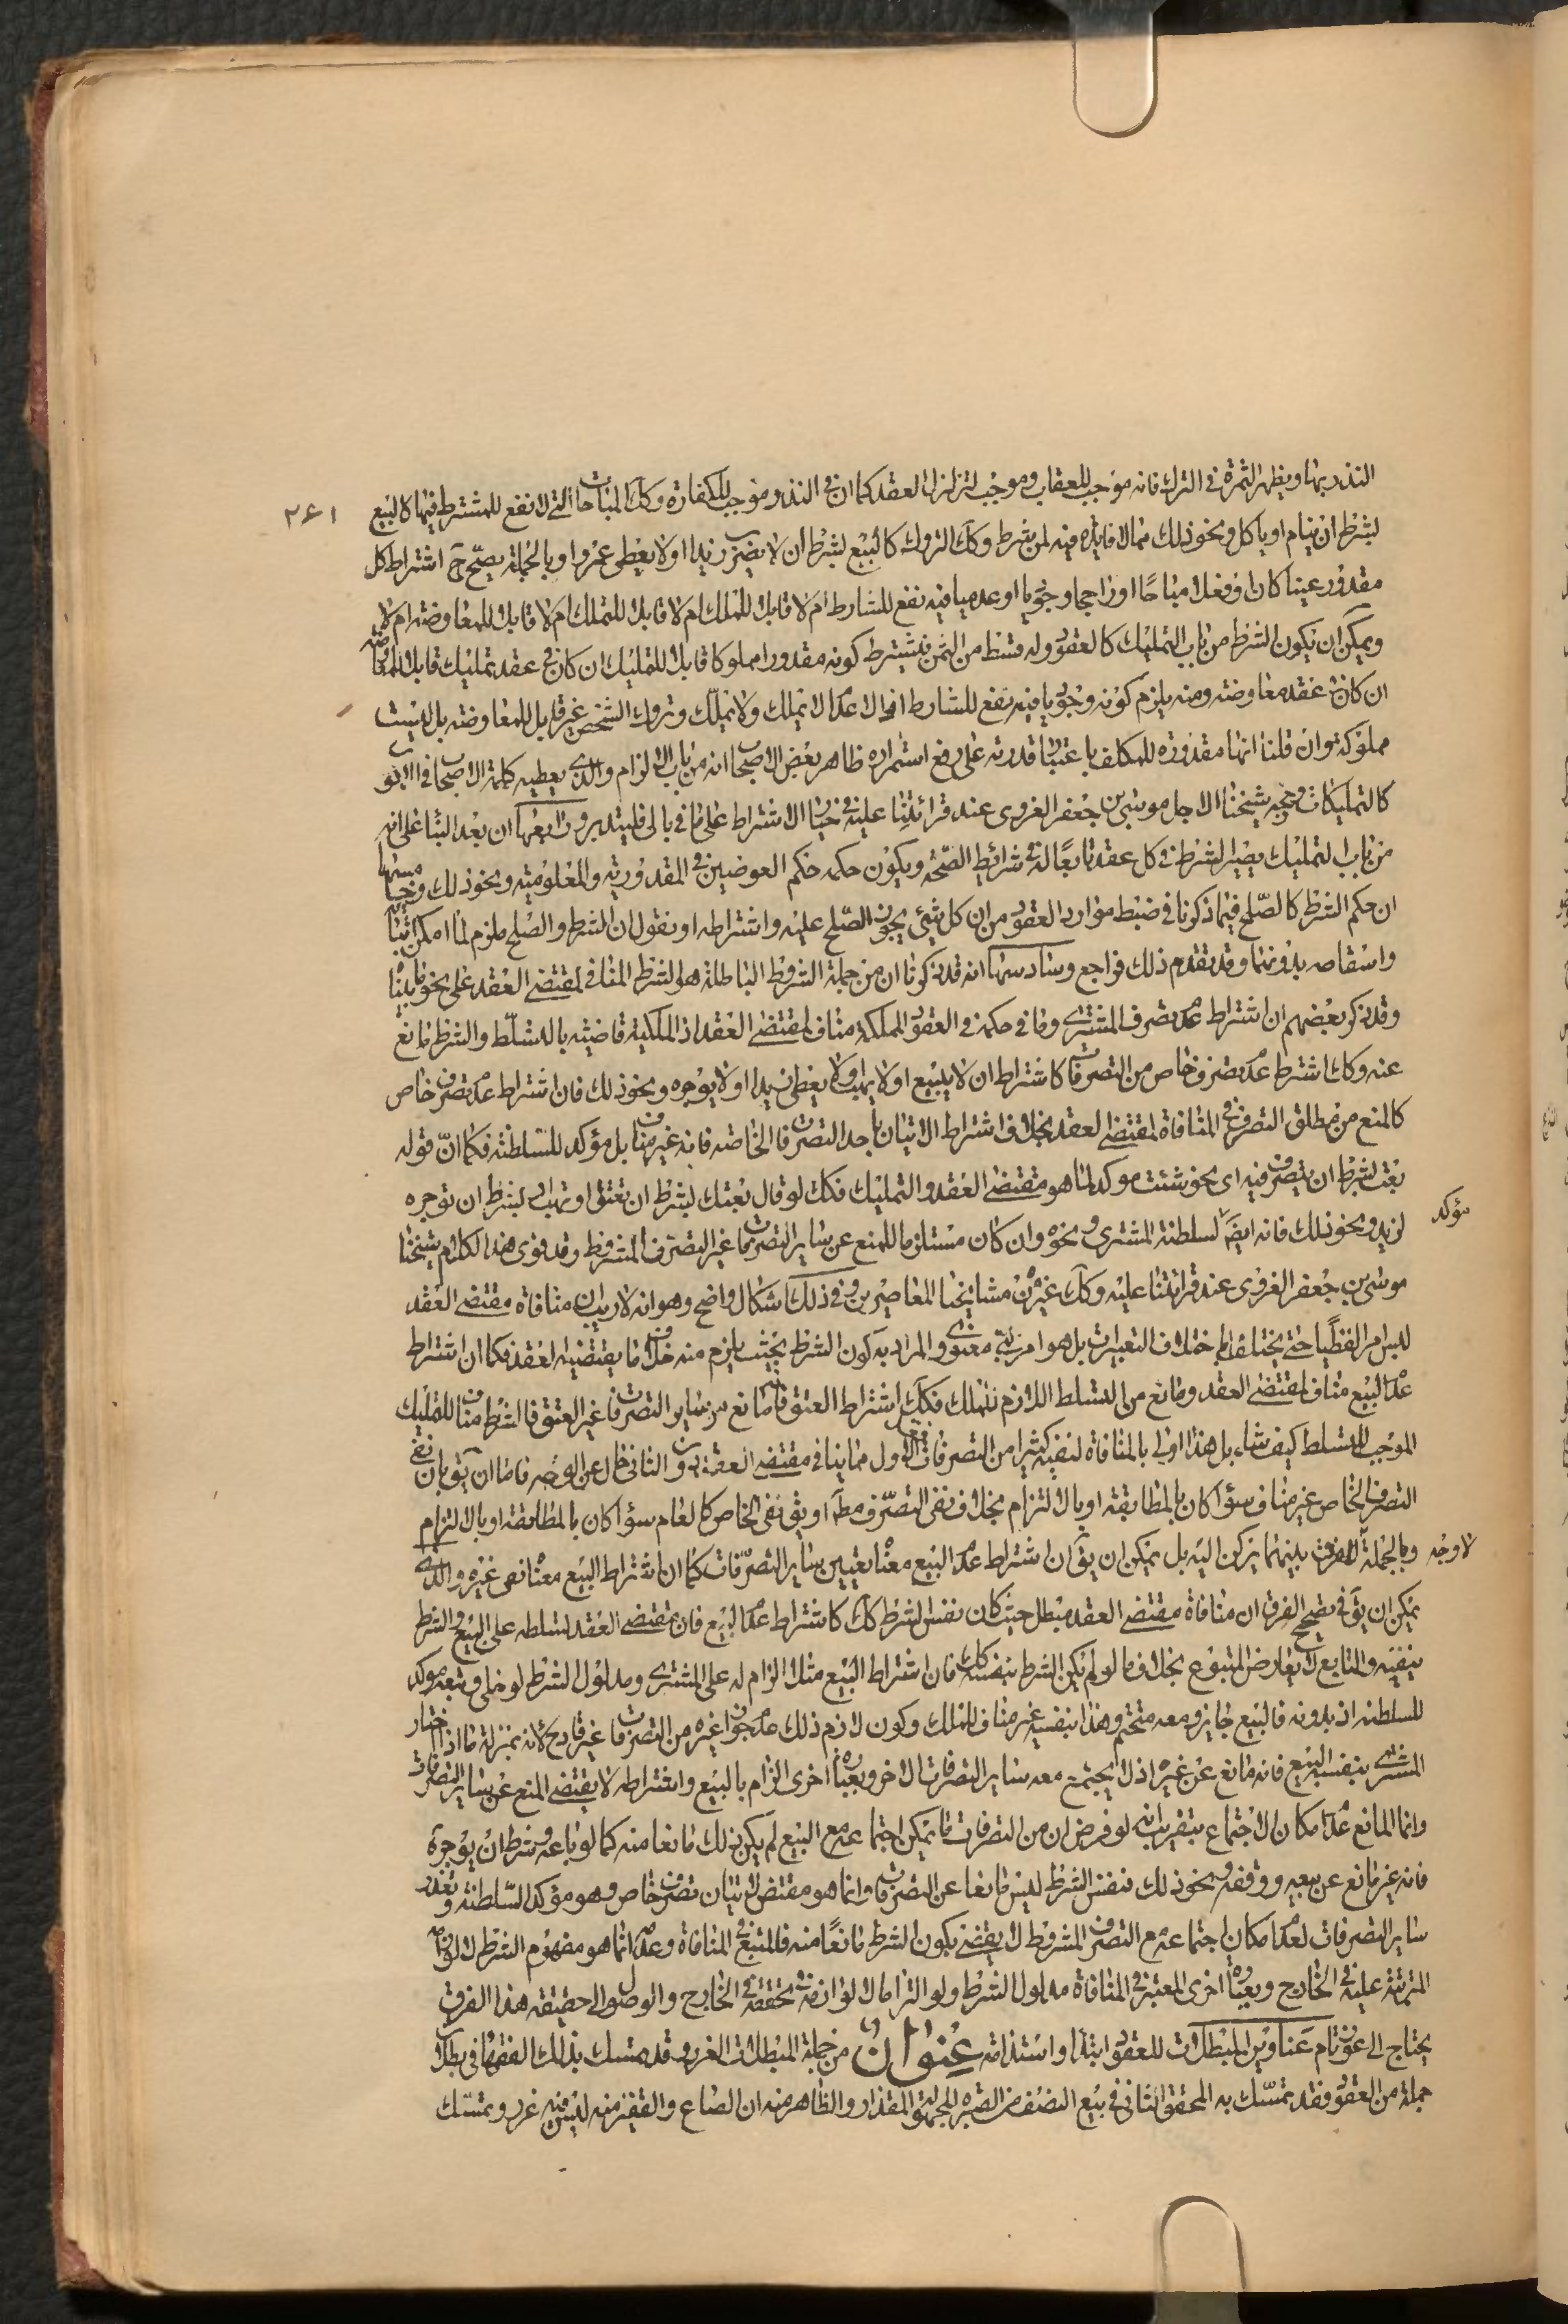 النذر بها ويظهر الثمرة فى الترك فانه موجب للعقاب وموجب لتزلزل العقد كما ان فى النذر موجب للكفارة وكك المباحات التى لا نفع للمشترط فيها كالبيع
٢۶١
بشرط ان ينام او ياكل ونحو ذلك مما لا فايده فيه لمن شرط وكك التروك كالبيع بشرط ان لا يضرب زيدا او لا يعطى عمروا وبالجملة يصح ح اشتراط كل
مقدور عينا كان او فعلا مباحا او راجحا وجوديا او عدميا فيه نفع للشارط ام لا قابلا للملك ام لا قابلا للتملك ام لا قابلا للمعاوضه ام لا
ويمكن ان يكون الشرط من باب التمليك كالعقود وله قسط من الثمن فيشترط كونه مقدورا مملوكا قابلا للتمليك ان كان فى عقد تمليك قابلا للمعاوضه
ان كان فى عقد معاوضه ومنه يلزم كونه وجوديا فيه نفع للشارط اذ الاعدام لا تملك ولا تملك وتروك الشخص غير قابل للمعاوضه بل ليست
مملوكة وان قلنا انها مقدورة للمكلف باعتبار قدرته على رفع استمراره ظاهر بعض الاصحاب انه من باب الالزام والذى يعطيه كلمة الاصحاب فى ابواب
كالتمليكات وجنح شيخنا الاجل موسى بن جعفر الغروى عند قرائتنا عليه فى خيار الاشتراط على ما فى بالى فليتدبر ورابعها ان بعد البناء على انه
من باب التمليك يصير الشرط فى كل عقد تابعا له فى شرائط الصحة ويكون حكمه حكم العوضين فى المقدورية والمعلوميه ونحو ذلك وخامسها
ان حكم الشرط كالصلح فيما ذكرنا فى ضبط موارد العقود من ان كل شئ يجوز الصلح عليه واشتراطه او نقول ان الشرط والصلح ملزم لما امكن اثباته
واسقاطه بدونهما وقد تقدم ذلك فراجع وسادسها انه قد ذكرنا ان من جملة الشروط الباطلة هو الشرط المنافى لمقتضى العقد على نحو ما بيناه
وقد ذكر بعضهم ان اشتراط عدم تصرف المشترى وما فى حكمه فى العقود المملكة مناف لمقتضى العقد اذ الملكية قاضيته بالتسلط والشرط مانع
عنه وكك اشتراط عدم تصرف خاص من التصرفات كاشتراط ان لا يبيع او لا يهب او لا يعطى زيدا او لا يوجره ونحو ذلك فان اشتراط عدم تصرف خاص
كالمنع من مطلق التصرف فى المنافاة لمقتضى العقد بخلاف اشتراط الاتيان باحد التصرفات الخاصه فانه غير مناف بل مؤكد للسلطنه فكما ان قوله
بعت بشرط ان يتصرف فيه اى نحو شئت موكد لما هو مقتضى العقد والتمليك فكك لو قال بعتك بشرط ان تعتق او تهب او بشرط ان توجره
لزيد ونحو ذلك فانه ايضا لسلطنة المشترى ونحوه وان كان مستلزما للمنع عن ساير التصرفات غير التصرف المشروط وقد قوى هذا الكلام شيخنا
مؤكد
موسى بن جعفر الغروى عند قرائتنا عليه وكك غيره من مشايخنا المعاصرين وفى ذلك اشكال واضح وهو انه لا ريب ان منافاة مقتضى العقد
ليس امرا لفظيا حتى يختلف باختلاف التعبيرات بل هو امر معنوى والمراد به كون الشرط بحيث يلزم منه خلاف ما يقتضيه العقد فكما ان اشتراط
عدم البيع مناف لمقتضى العقد ومانع من التسلط اللازم للملك فكك اشتراط العتق فانه مانع من ساير التصرفات غير العتق فالشرط مناف للتمليك
الموجب للتسلط كيف شاء بل هذا اولى بالمنافاة لنفيه كثيرا من التصرفات فجعل الاول مما ينافى مقتضى العقد دون الثانى خال عن الوجه فاما ان يق بان نفى
التصرف الخاص غير مناف سواء كان بالمطابقة او بالالتزام بخلاف نفى التصرف مطلقا او يق نفى الخاص كالعام سواء كان بالمطابقه او بالالتزام
وبالجملة الفرق بينهما يركن اليه بل يمكن ان يق ان اشتراط عدم البيع معناه تعيين ساير التصرفات كما ان اشتراط البيع معناه نفى غيره والذى
لا وجه
يمكن ان يق فى تصحيح الفرق ان منافاة مقتضى العقد مبطل حيث كان نفس الشرط كك كاشتراط عدم البيع فان مقتضى العقد تسلطه على البيع والشرط
ينفيه والتابع لا يعارض المتبوع بخلاف ما لو لم يكن الشرط بنفسه كك فان اشتراط البيع مثلا الزام له على المشترى ومدلول الشرط لو خلى ونفسه موكد
للسلطنه اذ بدونه فالبيع جايز ومعه متحتم وهذا بنفسه غير مناف للملك وكون لازم ذلك عدم جواز غيره من التصرفات غير قادح لانه بمنزلة ما اذا اختار
المشترى بنفسه البيع فانه مانع عن غيره اذ لا يجتمع معه ساير التصرفات الاخر وبعبارة اخرى الزام بالبيع واشتراطه لا يقتضى المنع عن ساير التصرفات
وانما المانع عدم امكان الاجتماع بتقريب انه لو فرض ان من التصرفات ما يمكن اجتماعه مع البيع لم يكن ذلك مانعا منه كما لو باعه وشرط ان يوجره
فانه غير مانع عن بيعه ووقفه ونحو ذلك فنفس الشرط ليس مانعا عن التصرفات وانما هو مقتض لاتيان تصرف خاص وهو مؤكد السلطنة وتعذر
ساير التصرفات لعدم امكان اجتماعه مع التصرف المشروط لا يقتضى بكون الشرط مانعا منه فالمتبع فى المنافاة وعدمه انما هو مفهوم الشرط لا لوازمه
المترتبة عليه فى الخارج وبعبارة اخرى المعتبر فى المنافاة مدلول الشرط ولو التزاما لا لوازمه تحققه فى الخارج والوصول الى حقيقة هذا الفرق
يحتاج الى عون تام عناوين المبطلات للعقود ابتداء واستدامة عنوان من جملة المبطلات الغرر وقد تمسك بذلك الفقهاء فى بطلان
جملة من العقود فقد تمسك به المحقق الثانى فى بيع النصف من الصبرة المجهولة المقدار والظاهر منه ان الصاع والقفيز منه ليس فيه غرر وتمسك